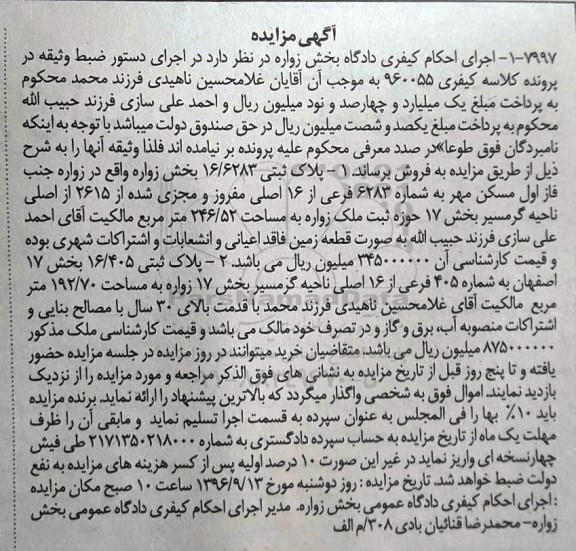 آگهی مزایده
۱-۷۹۹۷- اجرای احکام کیفری دادگاه بخش زواره در نظر دارد در اجرای دستور ضبط وثیقه در
پرونده کلاسه کیفری ۹۶۰۰۵۵ به موجب آن آقایان غلامحسین ناهیدی فرزند محمد محکوم
به پرداخت مبلغ یک میلیارد و چهارصد و نود میلیون ریال و احمد علی سازی فرزند حبیب الله
محکوم به پرداخت مبلغ یکصد و شصت میلیون ریال در حق صندوق دولت میباشد با توجه به اینکه
نامبردگان فوق طوعا»در صدد معرفی محکوم علیه پرونده بر نیامده اند فلذا وثیقه آنها را به شرح
ذیل از طریق مزایده به فروش برساند. ۱ - پلاک ثبتی ۱۶/۶۲۸۳ بخش زواره واقع در زواره جنب
فاز اول مسکن مهر به شماره ۶۲۸۳ فرعی از ۱۶ اصلی مفروز و مجزی شده از ۲۶۱۵ از اصلی
ناحیه گرمسیر بخش ۱۷ حوزه ثبت ملک زواره به مساحت ۲۴۶/۵۲ متر مربع مالکیت آقای احمد
علی سازی فرزند حبیب الله به صورت قطعه زمین فاقد اعیانی و انشعابات و اشتراکات شهری بوده
و قیمت کارشناسی آن ۳۴۵۰۰۰۰۰۰ میلیون ریال می باشد. ۲ - پلاک ثبتی ۱۶/۴۰۵ بخش ۱۷
اصفهان به شماره ۴۰۵ فرعی از ۱۶ اصلی ناحیه گرمسیر بخش ۱۷ زواره به مساحت ۱۹۲/۷۰ متر
مربع مالکیت آقای غلامحسین ناهیدی فرزند محمد با قدمت بالای ۳۰ سال با مصالح بنایی و
اشتراکات منصوبه آب، برق و گاز و در تصرف خود مالک می باشد و قیمت کارشناسی ملک مذکور
۸۷۵۰۰۰۰۰۰ میلیون ریال می باشد، متقاضیان خرید میتوانند در روز مزایده در جلسه مزایده حضور
یافته و تا پنج روز قبل از تاریخ مزایده به نشانی های فوق الذکر مراجعه و مورد مزایده را از نزدیک
بازدید نمایند. اموال فوق به شخصی واگذار میگردد که بالاترین پیشنهاد را ارائه نماید. برنده مزایده
باید ۱۰٪ بها را فی المجلس به عنوان سپرده به قسمت اجرا تسلیم نماید و مابقی آن را ظرف
مهلت یک ماه از تاریخ مزایده به حساب سپرده دادگستری به شماره ۲۱۷۱۳۵۰۲۱۸۰۰۰ طی فیش
چهارنسخه ای واریز نماید در غیر این صورت ۱۰ درصد اولیه پس از کسر هزینه های مزایده به نفع
دولت ضبط خواهد شد. تاریخ مزایده : روز دوشنبه مورخ ۱۳۹۶/۹/۱۳ ساعت ۱۰ صبح مکان مزایده
: اجرای احکام کیفری دادگاه عمومی بخش زواره. مدیر اجرای احکام کیفری دادگاه عمومی بخش
زواره- محمدرضا قنائیان بادی ۳۰۸/م الف